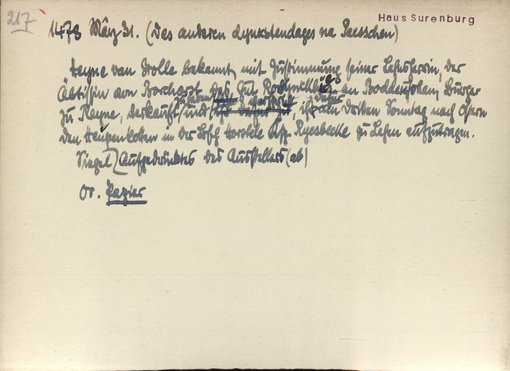 217
Haus Surenburg
1478 März 31. (des anderen dynxstendages na Paesschen)
Heyne van Welle bekennt, mit Zustimmung seiner Lehnsherrin, der
Äbtissin von Borchorst, das Gut an Boddenschen, Bürger
zu Rheyne, verkauft und ihm am dritten Sonntag nach Ostern
den Heupenkoten in der Bsch. Ksp. Ryesbecke zu Lehen aufzutragen.
Siegel (Aufgedrücktes des Ausstellers (ab)
Or. Papier